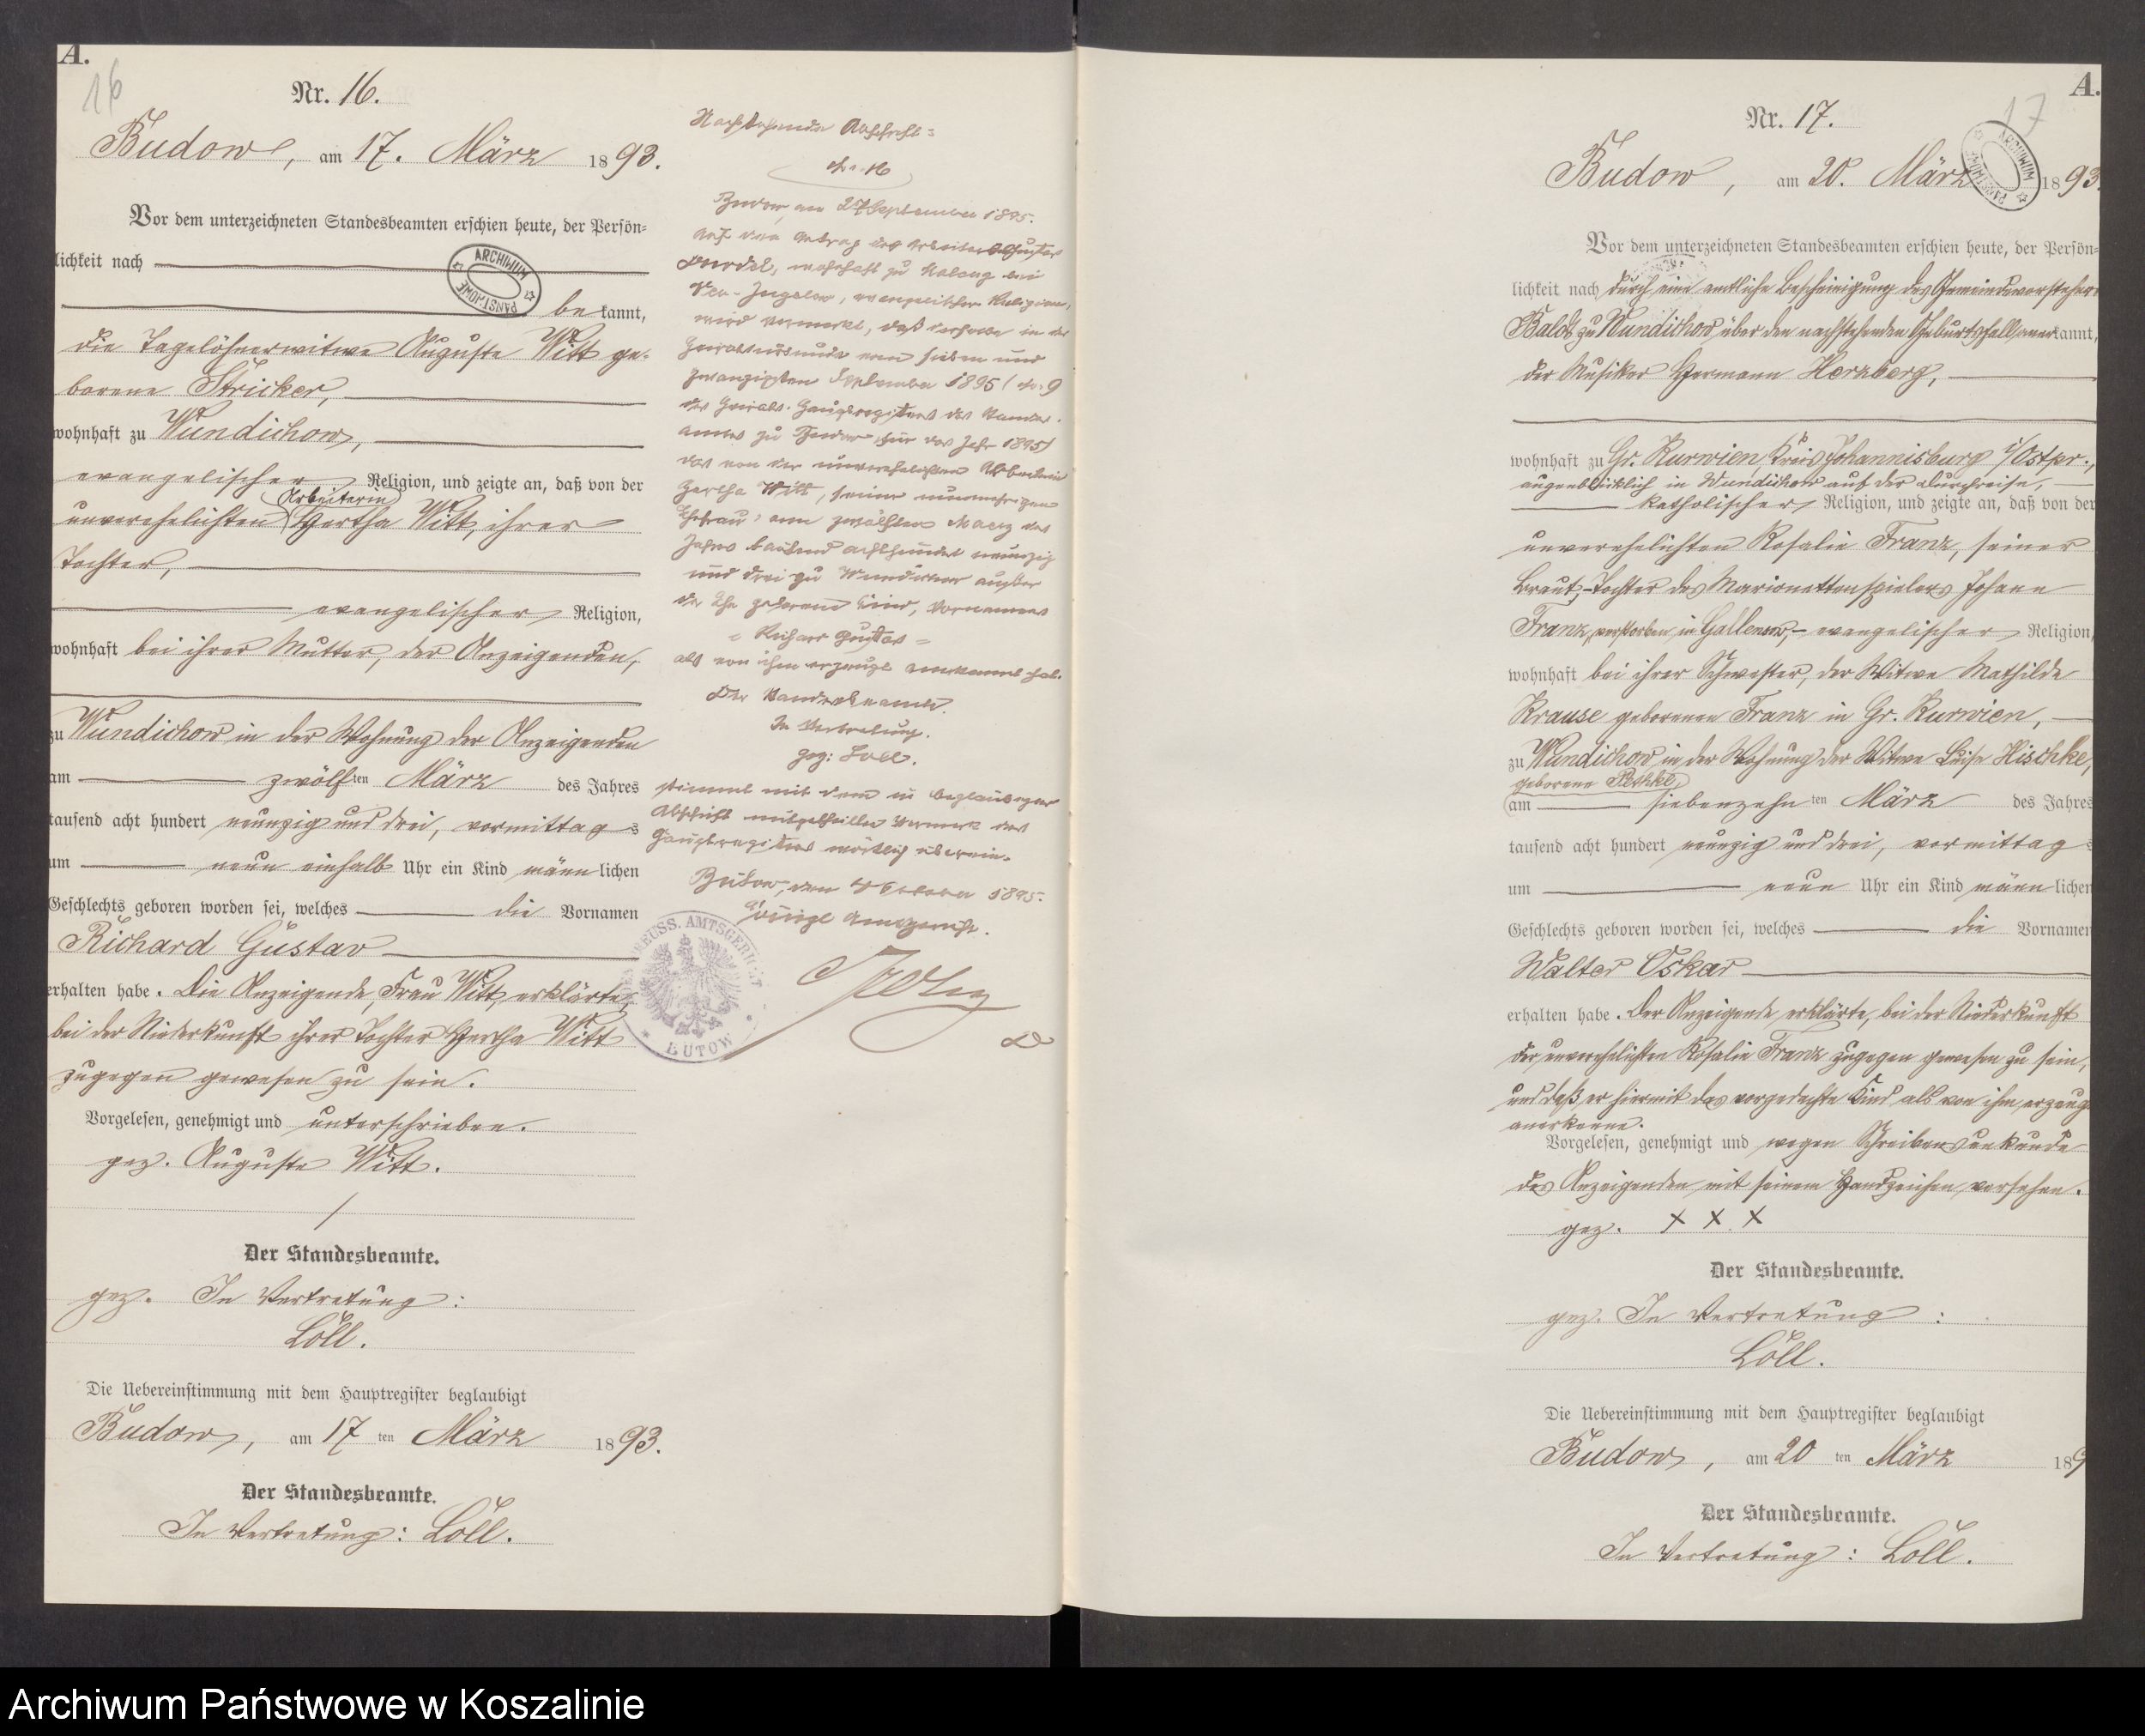 A.
16
Nr. 16.
Budow, am 17. März 1893.
Vor dem unterzeichneten Standesbeamten erschien heute, der Persön=
lichkeit nach
ARCHIWUM PAŃSTWOWE
be kannt,
die Tagelöhnerwitwe Auguste Witt ge-
borene Stricker,
wohnhaft zu Wundichow,
evangelischer Religion, und zeigte an, daß von der
Arbeiterin
unverehelichten Hertha Witt, ihrer
Tochter,
evangelischer Religion,
wohnhaft bei ihrer Mutter, der Anzeigenden,
zu Wundichow in der Wohnung der Anzeigenden
am zwölften März des Jahres
tausend acht hundert neunzig und drei, vormittags
um neun einhalb Uhr ein Kind männlichen
Geschlechts geboren worden sei, welches die Vornamen
Richard Gustav
erhalten habe. Die Anzeigende, Frau Witt, erklärte,
bei der Niederkunft ihrer Tochter Hertha Witt
zugegen gewesen zu sein.
Vorgelesen, genehmigt und unterschrieben.
gez. Auguste Witt.
Der Standesbeamte.
gez. In Vertretung:
Löll.
Die Uebereinstimmung mit dem Hauptregister beglaubigt
Budow, am 17ten März 1893.
Der Standesbeamte.
In Vertretung: Löll.
Nachstehende Abschrift:
No. 16
Budow, am 27 September 1895.
Auf den Antrag des Arbeiters Gustav
wohnhaft zu
evangelischer Religion,
wird vermerkt, daß derselbe in der
Heiratsurkunde vom sieben und
zwanzigsten September 1895 (No. 9
des Heirats-Hauptregisters des Standes-
amtes zu Budow für das Jahr 1895)
das von der unverehelichten Arbeiterin
Hertha Witt, seiner nunmehrigen
Ehefrau, am zwölften Maerz des
Jahres tausend achthundert neunzig
und drei zu Wundichow außer
der Ehe geborene Kind, Vornamens
= Richard Gustav =
als von ihm erzeugt anerkannt hat.
Der Standesbeamte.
In Vertretung.
gez: Loell.
stimmt mit dem in beglaubigter
Abschrift mitgetheilten Vermerk des
Hauptregisters wörtlich überein.
Bütow, den 4 October 1895.
Königl. Amtsgericht.
PREUSS. AMTSGERICHT
BÜTOW
A.
17
Nr. 17.
Budow, am 20. März 1893.
ARCHIWUM PAŃSTWOWE
Vor dem unterzeichneten Standesbeamten erschien heute, der Persön=
lichkeit nach durch eine amtliche Bescheinigung des Gemeindevorstehers
Baldt zu Wundichow über den nachstehenden Geburtsfall anerkannt,
der Musiker Hermann Herzberg,
wohnhaft zu Gr. Kurwien, Kreis Johannisburg i/Ostpr.,
augenblicklich in Wundichow auf der Durchreise,
katholischer Religion, und zeigte an, daß von der
unverehelichten Rosalie Franz, seiner
Braut,-Tochter des Marionettenspielers Johann
Franz, verstorben in - evangelischer Religion,
wohnhaft bei ihrer Schwester, der Witwe Mathilde
Krause geborenen Franz in Gr. Kurwien,
zu Wundichow in der Wohnung der Witwe Luise Hischke,
geborene Peschke,
am siebenzehnten März des Jahres
tausend acht hundert neunzig und drei, vormittags
um neun Uhr ein Kind männlichen
Geschlechts geboren worden sei, welches die Vornamen
Walter Oskar
erhalten habe. Der Anzeigende erklärte, bei der Niederkunft
der unverehelichten Rosalie Franz zugegen gewesen zu sein,
und daß er hiermit das vorgedachte Kind als von ihm erzeugt
anerkenne.
Vorgelesen, genehmigt und wegen Schreibensunkunde
des Anzeigenden mit seinem Handzeichen versehen.
gez. X X X
Der Standesbeamte.
gez. In Vertretung:
Löll.
Die Uebereinstimmung mit dem Hauptregister beglaubigt
Budow, am 20ten März 189
Der Standesbeamte.
In Vertretung: Löll.
Archiwum Państwowe w Koszalinie